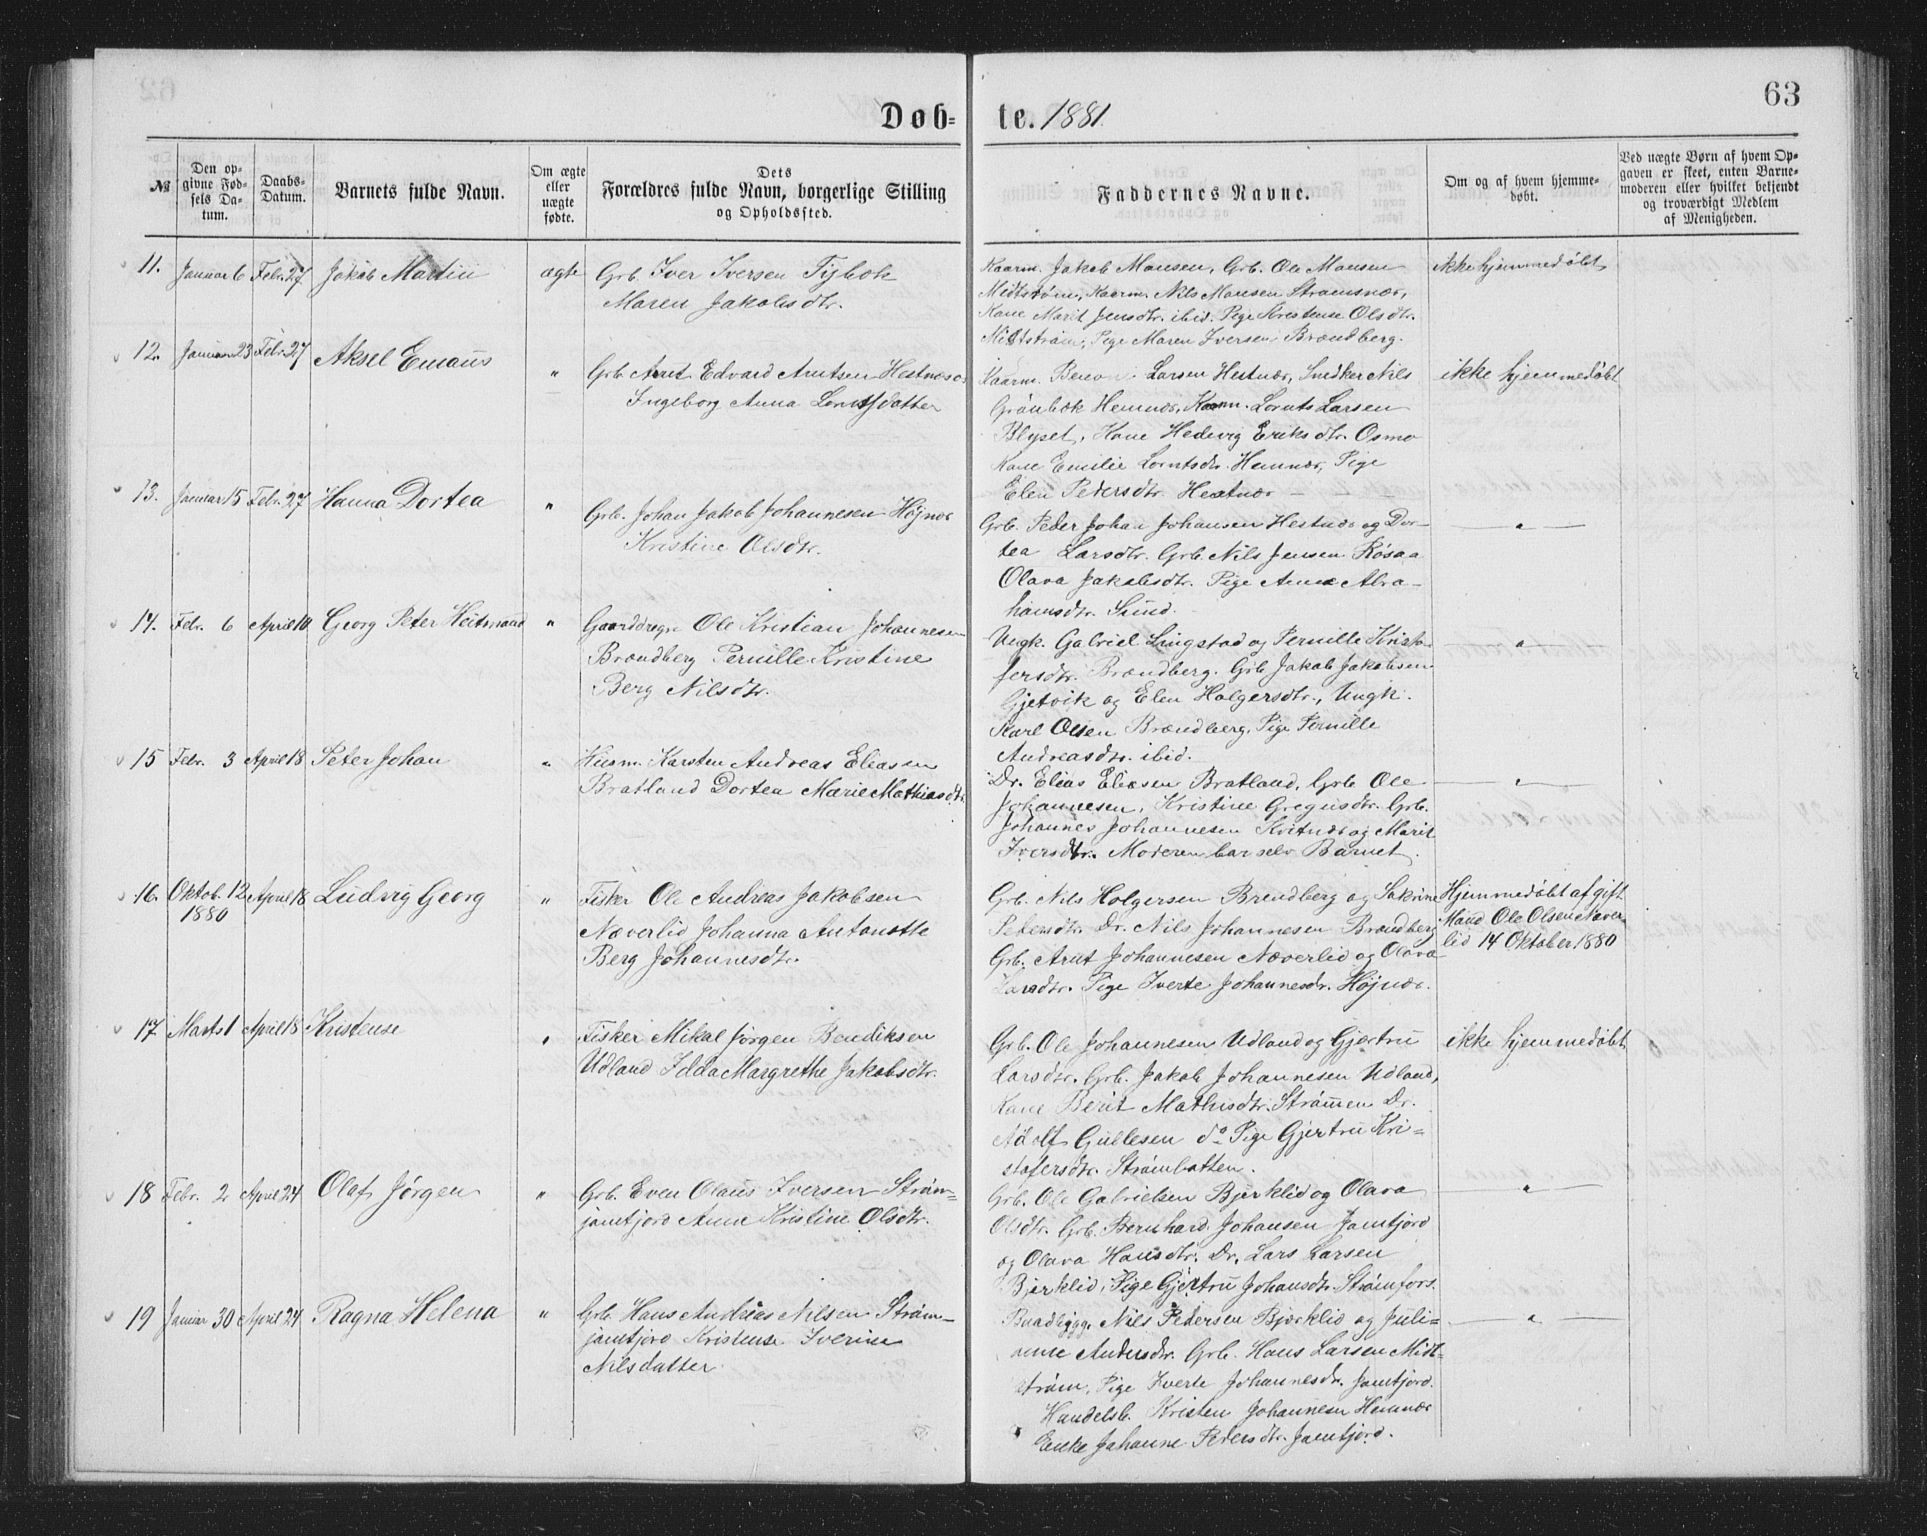 63
Døb=te. 1881.
№
Den op-
givne Fød-
sels Da-
tum.
Daabs-
Datum.
Barnets fulde Navn.
Om ægte
eller
uægte
fødte.
Dets
Forældres fulde Navn, borgerlige Stilling
og Opholdssted.
Faddernes Navne.
Om og af hvem hjemme-
døbt.
Ved uægte Børn af hvem Op-
gaven er skeet, enten Barne-
moderen eller hvilket bekjendt
og troværdigt Medlem
af Menigheden.
11. Januar 6 Febr. 27 Jakob Martin ægte Grb. Iver Iversen
Maren Jakobsdtr.
Kaarm. Jakob Monsen, Grb. Ole Monsen
Midtstrøm, Kaarm. Nils Monsen Strømsnær,
Kone Marit Jensdtr. ibid. Pige Kristense Olsdtr.
Midtstrøm, Pige Maren Iversen Brændberg.
ikke hjemmedøbt
12. Januar 23 Febr. 27 Aksel Emaus " Grb. Arnt Edvard Arntsen Hestnæs
Ingeborg Anna Lorntsdatter
Kaarm. Larsen Hestnær, Snedker Nils
Grønbæk Hemnær, Kaarm. Lornts Larsen
Blyset, Kone Hedevig Eriksdtr. Osmo
Kone Emilie Lorntsdtr. Hemnær, Pige
Elen Pedersdtr. Hestnær
ikke hjemmedøbt
13. Januar 15 Febr. 27 Hanna Dortea " Grb. Johan Jakob Johannesen Højnær
Kristine Olsdtr.
Grb. Peder Johan Johansen Hestnær og Dor-
tea Larsdtr. Grb. Nils Jensen Røsaa
Olava Jakobsdtr. Pige Anna Abra-
hamsdtr. Sund.
— " —
14. Febr. 6 April 10 Georg Peter Heitmann " Gaarddregn Ole Kristian Johannesen
Brændberg Pernille Kristine
Berg Nilsdtr.
Ungk. Gabriel Lingstad og Pernille Kristo-
fersdtr. Brændberg. Grb. Jakob Jakobsen
Gjetvik og Elen Holgersdtr., Ungk.
Karl Olsen Brændberg, Pige Pernille
Andreasdtr. ibid.
— " —
15 Febr. 3 April 18 Peter Johan " Husm. Karsten Andreas Eliasen
Bratland Dortea Marie Mathiasdtr.
Dr. Elias Eliasen Bratland, Grb. Ole
Johannesen, Kristine Gregusdtr. Grb.
Johannes Johannesen Kvitnær og Marit
Iversdtr. Moderen bar selv Barnet.
— " —
16. Oktob. 12 April 18 Ludvig Georg " Fisker Ole Andreas Jakobsen
1880
Næverlid Johanna Antonette
Berg Johannesdtr.
Grb. Nils Holgersen Brendberg og Sakrine
Petersdtr. Dr. Nils Johannesen Brændberg
Grb. Arnt Johannesen Næverlid og Olava
Larsdtr. Pige Iverte Johannesdr. Højnær.
Hjemmedøbt af gift
Mand Ole Olsen Næver-
lid 14 Oktober 1880
17 Marts 1 April 18 Kristense " Fisker Mikal Jørgen Bendiksen
Udland Idda Margrethe Jakobsdtr.
Grb. Ole Johannesen Udland og Gjertru
Larsdtr. Grb. Jakob Johannesen Udland,
Kone Berit Mathisdtr. Strømmen Dr.
Adolf Gullesen do Pige Gjertru Kri=
stofersdtr. Strømbotten.
ikke hjemmedøbt
18 Febr. 2 April 24 Olaf Jørgen " Grb. Even Olaus Iversen Strøm=
jamtfjord Anne Kristine Olsdtr.
Grb. Ole Gabrielsen Bjerklid og Olava
Olsdtr. Grb. Bernhard Johansen Jamtfjord
og Olava Hansdtr. Dr. Lars Larsen
Bjerklid, Pige Gjertru Johansdtr. Strømfors.
— " —
19 Januar 30 April 24 Ragna Helena " Grb. Hans Andreas Nilsen Strøm-
jamtfjord Kristense Iverine
Nilsdatter
Nils Pedersen Bjerklid og Juli=
anne Andersdtr. Grb. Hans Larsen Midt-
strøm, Pige Iverte Johannesdr. Jamtfjord.
Handelsb. Kristen Johannesen Hemnær
Enke Johanne Pedersdtr. Jamtfjord.
— " —